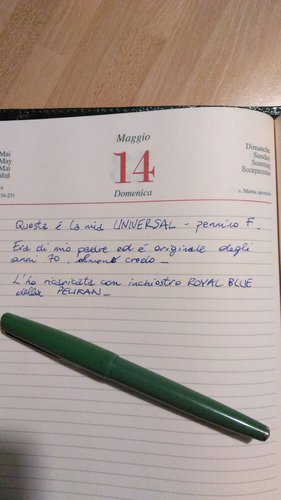 Maggio
14
Domenica
Mai
May
Mai
Mai
134-231
Dimanche
Sunday
Sonntag
Воскресенье
s. Mattia apostolo
Questa è la mia UNIVERSAL - pennino F.
Era di mio padre ed è originale degli
anni 70 credo -
L'ho ricaricata con inchiostro ROYAL BLUE
della PELIKAN -